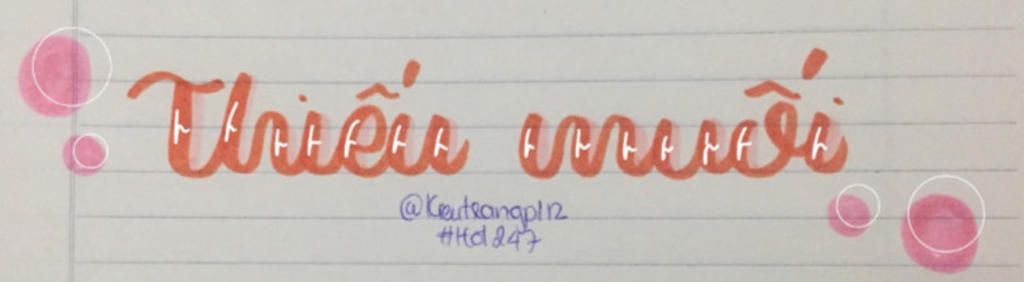 Thiếu muối
@Kieutrangp112
#Hd247